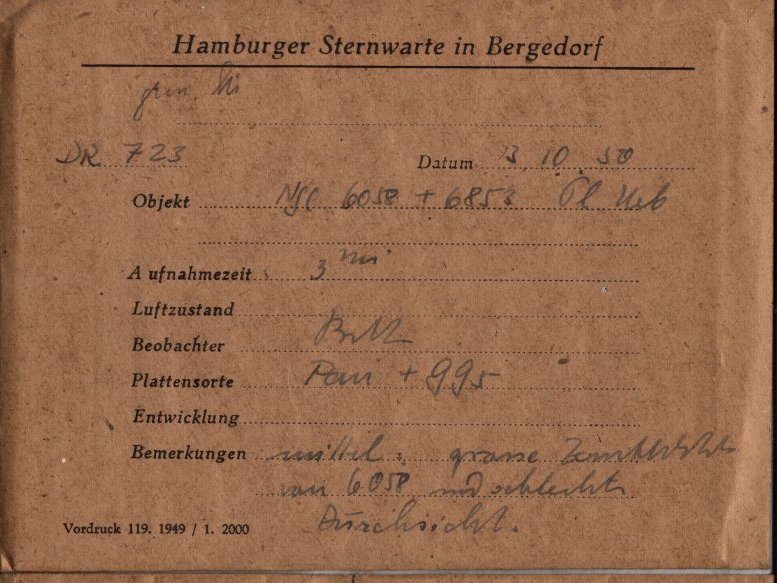 Hamburger Sternwarte in Bergedorf
DR 723 Datum 3 10 50
Objekt NGC 6058 + 6853 Pl Neb
Aufnahmezeit 3 mi
Luftzustand
Beobachter
Plattensorte Pan + 995
Entwicklung
Bemerkungen mittel. grosse
von 6058 und schlechte
Durchsicht.
Vordruck 119. 1949 / 1. 2000